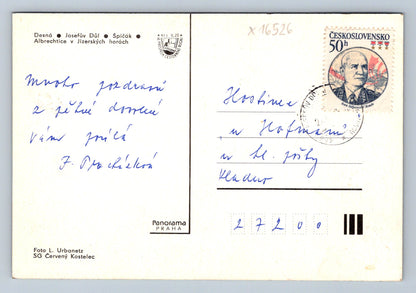 Desná ● Josefův Důl ● Špičák ●
Albrechtice v Jizerských horách
x 16526
ČESKOSLOVENSKO
50 h
Mnoho pozdravů
z pěkné dovolené
Vám posílá
J. Procházková
Hostinec
u Hofmanů
u hl. pošty
Kladno
27200
Panorama
PRAHA
Foto L. Urbanetz
SG Červený Kostelec